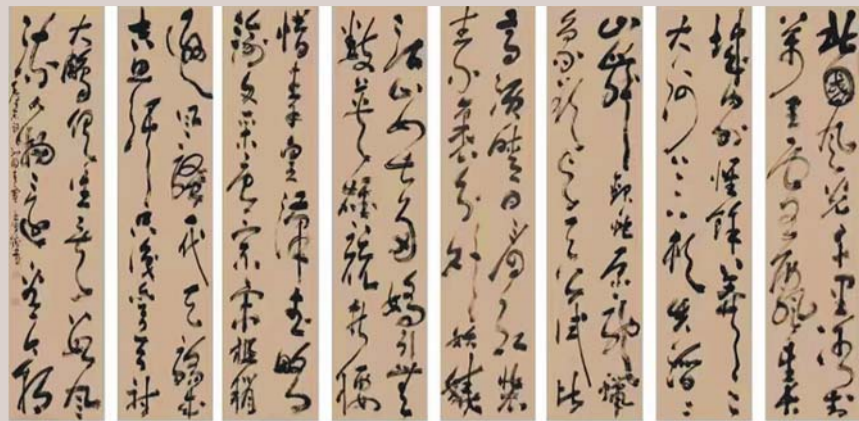 北國風光千里冰封
萬里雪飄望長
城內外惟餘莽莽
大河上下頓失滔滔
山舞銀蛇原馳蠟
象欲與天公試比
高須晴日看紅裝
素裹分外妖嬈
江山如此多嬌引無
數英雄競折腰
惜秦皇漢武略
輸文采唐宗宋祖稍
遜風騷一代天驕成
吉思汗只識彎弓射
大鵰俱往矣數風
流人物還看今朝